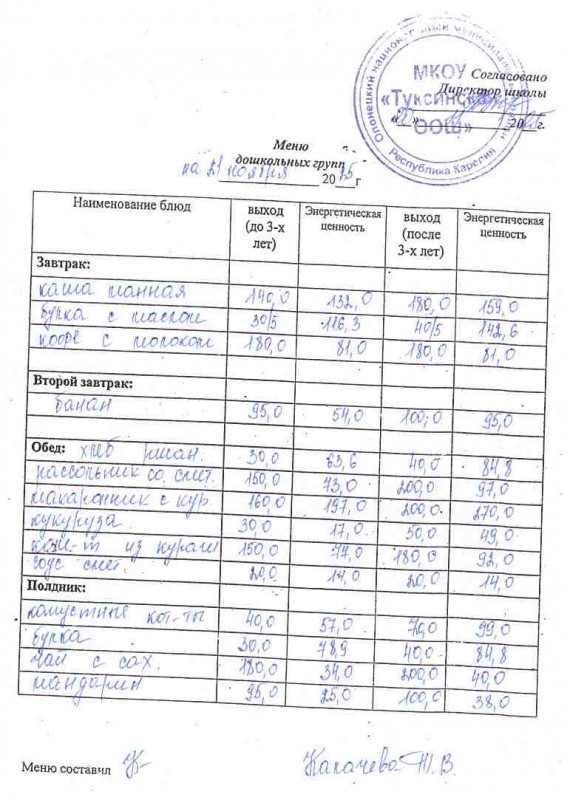 Олонецкий национальный муниципальный
МКОУ
«Туксинская
ООШ»
Республика Карелия
Согласовано
Директор школы
20 25 г.
Меню
дошкольных групп
на 21 ноября 20 25 г
Наименование блюд выход (до 3-х лет) Энергетическая ценность выход (после 3-х лет) Энергетическая ценность
Завтрак:
каша манная 140,0 132,0 180,0 159,0
булка с маслом 30/5 116,3 40/5 142,6
кофе с молоком 180,0 81,0 180,0 81,0
Второй завтрак:
банан 95,0 54,0 100,0 95,0
Обед: хлеб ржан. 30,0 63,6 40,0 84,8
рассольник со смет. 150,0 73,0 200,0 97,0
макаронник с кур. 160,0 197,0 200,0 270,0
кукуруза 30,0 17,0 50,0 49,0
ком-т из кураги 150,0 77,0 180,0 92,0
соус смет. 20,0 14,0 20,0 14,0
Полдник:
капустные кот-ты 40,0 57,0 70,0 99,0
булка 30,0 78,9 40,0 84,8
чай с сах. 180,0 34,0 200,0 40,0
мандарин 95,0 25,0 100,0 38,0
Меню составил Капачева Т.В.